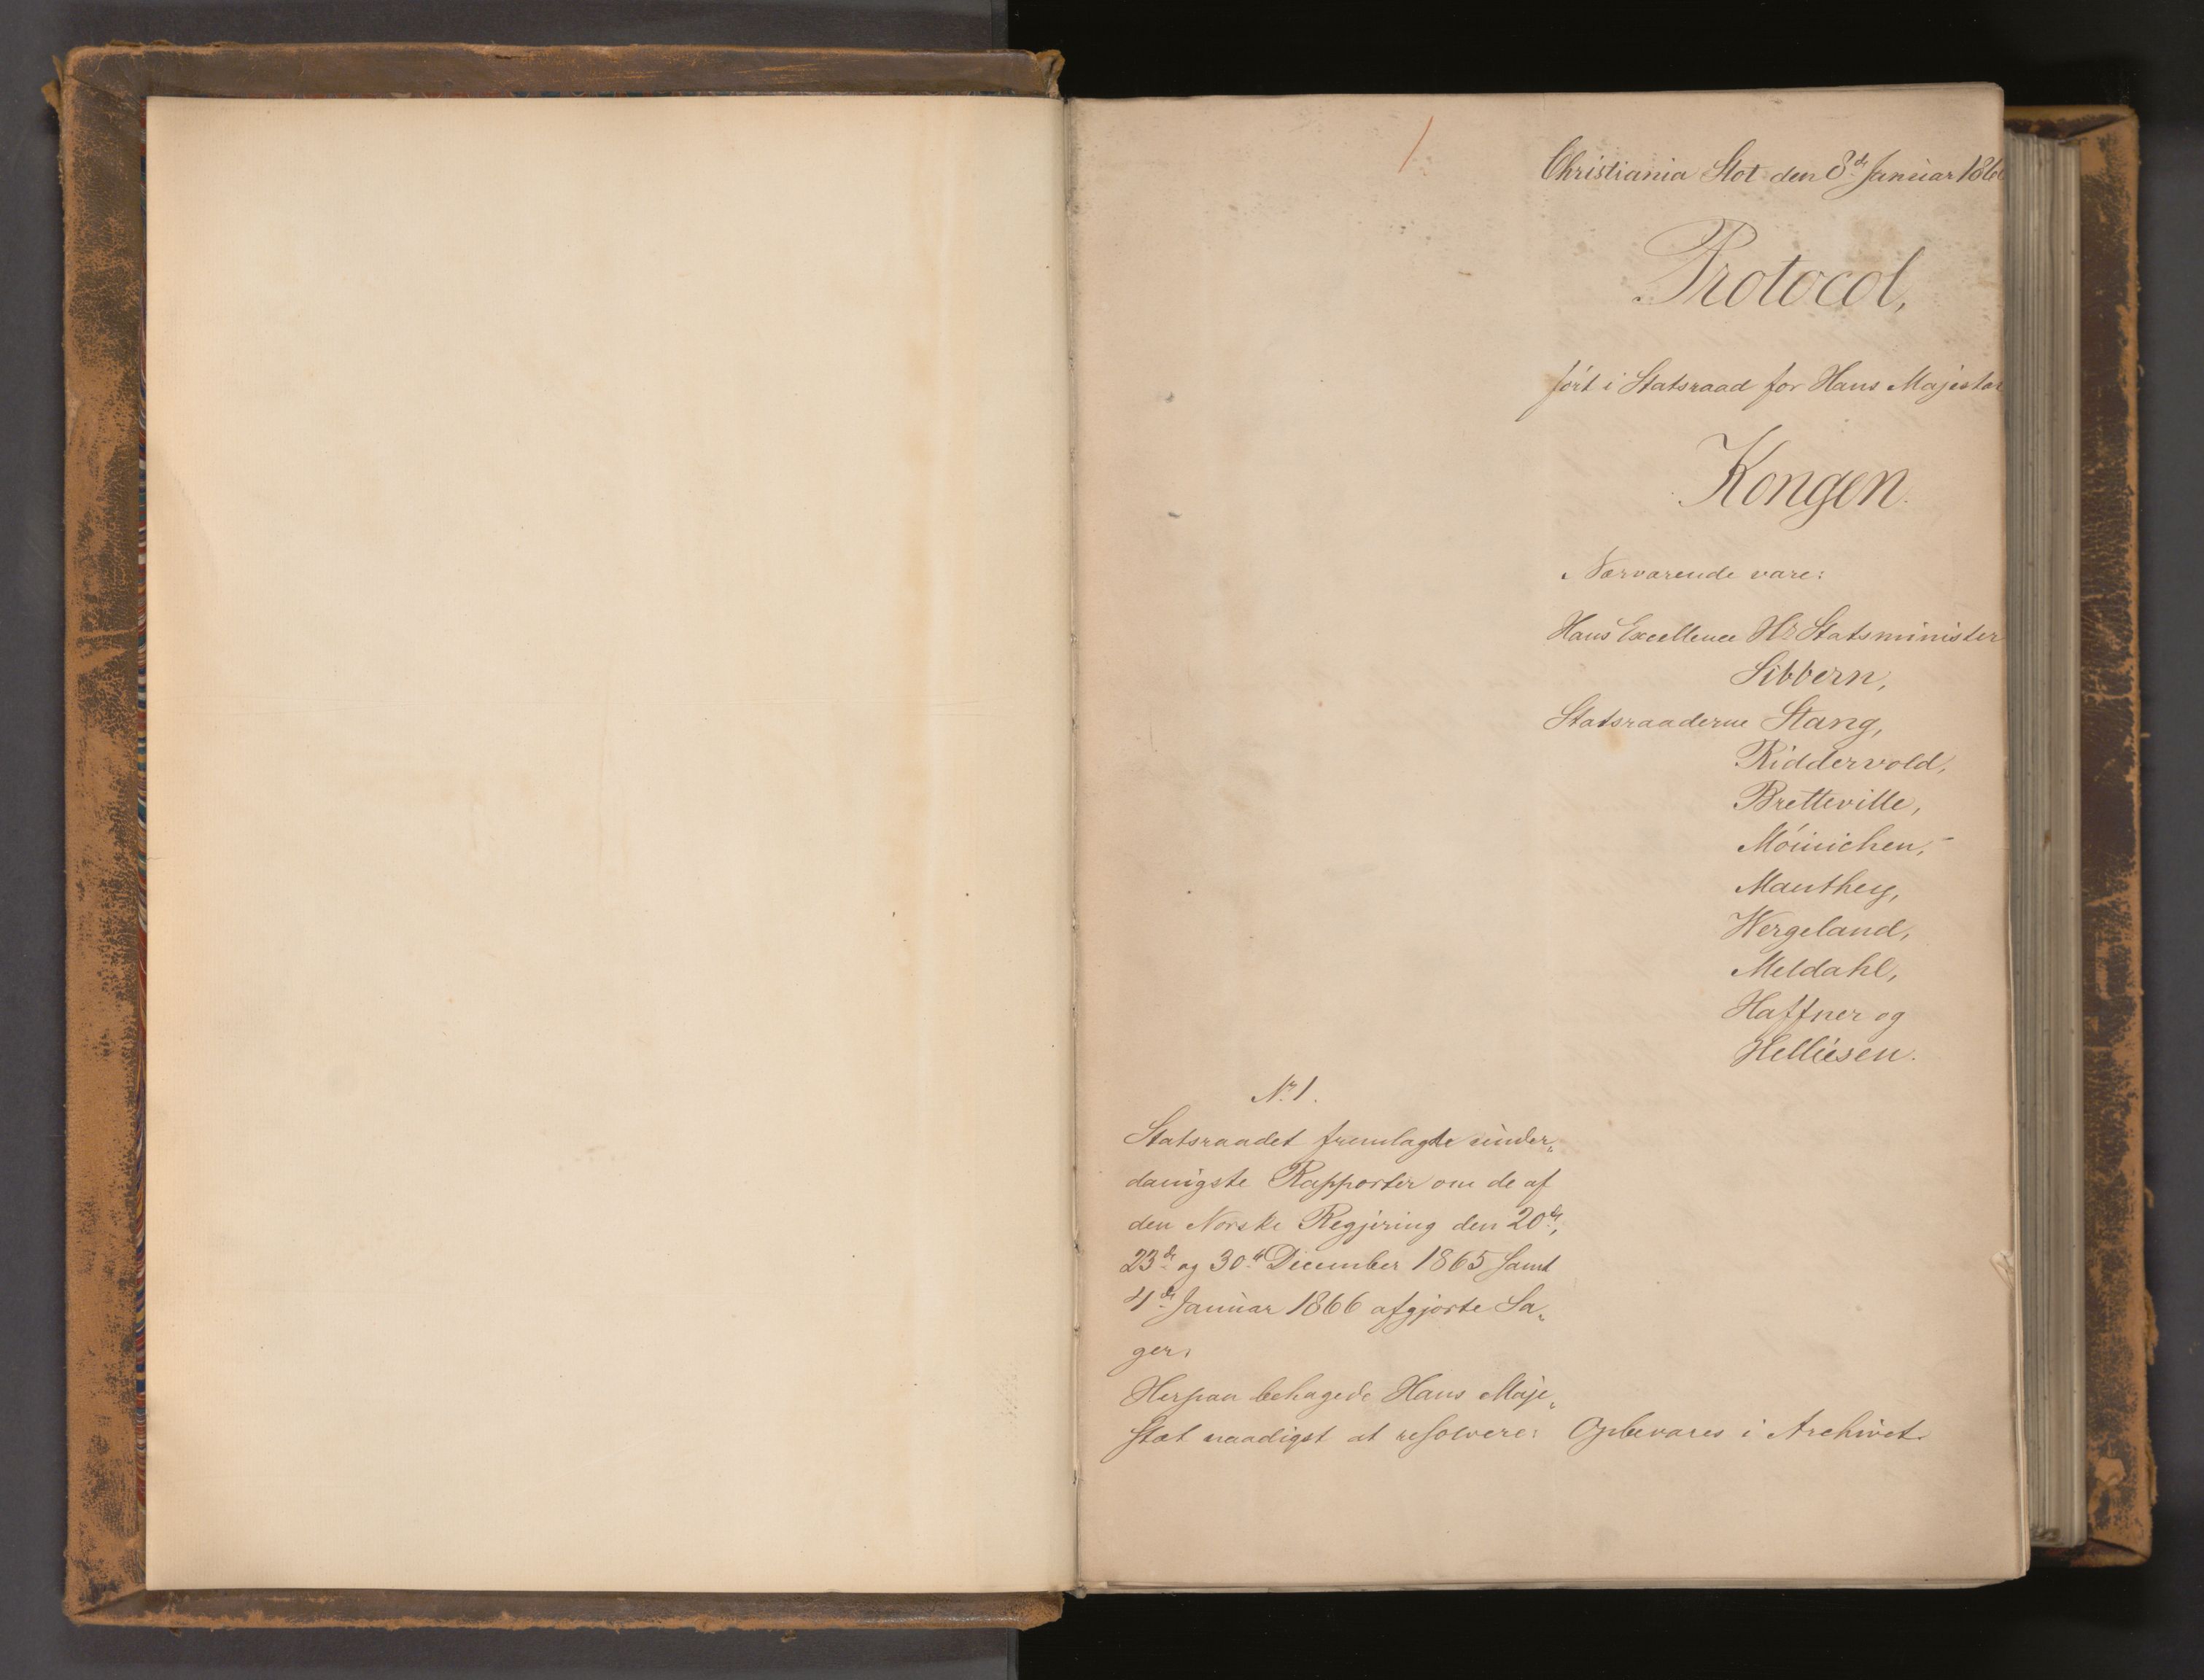 1
Christiania Slot den 8de Januar 186
Protocol,
ført i Statsraad for Hans Majestæt
Kongen.
Nærværende vare:
Hans Excellence Hr Statsminister
Sibbern,
Statsraaderne Stang,
Riddervold,
Bretteville,
Móinichen,
Manthey,
Wergeland,
Meldahl,
Haffner og
Helliesen.
No 1.
Statsraadet fremlagde under„
danigste Rapporter om de af
den Norske Regjering den 20de,
23de og 30te December 1865 samt
4de Januar 1866 afgjorte Sa„
ger.
Herpaa behagede Hans Maje„
stæt naadigst at resolvere: Opbevares i Archivet.